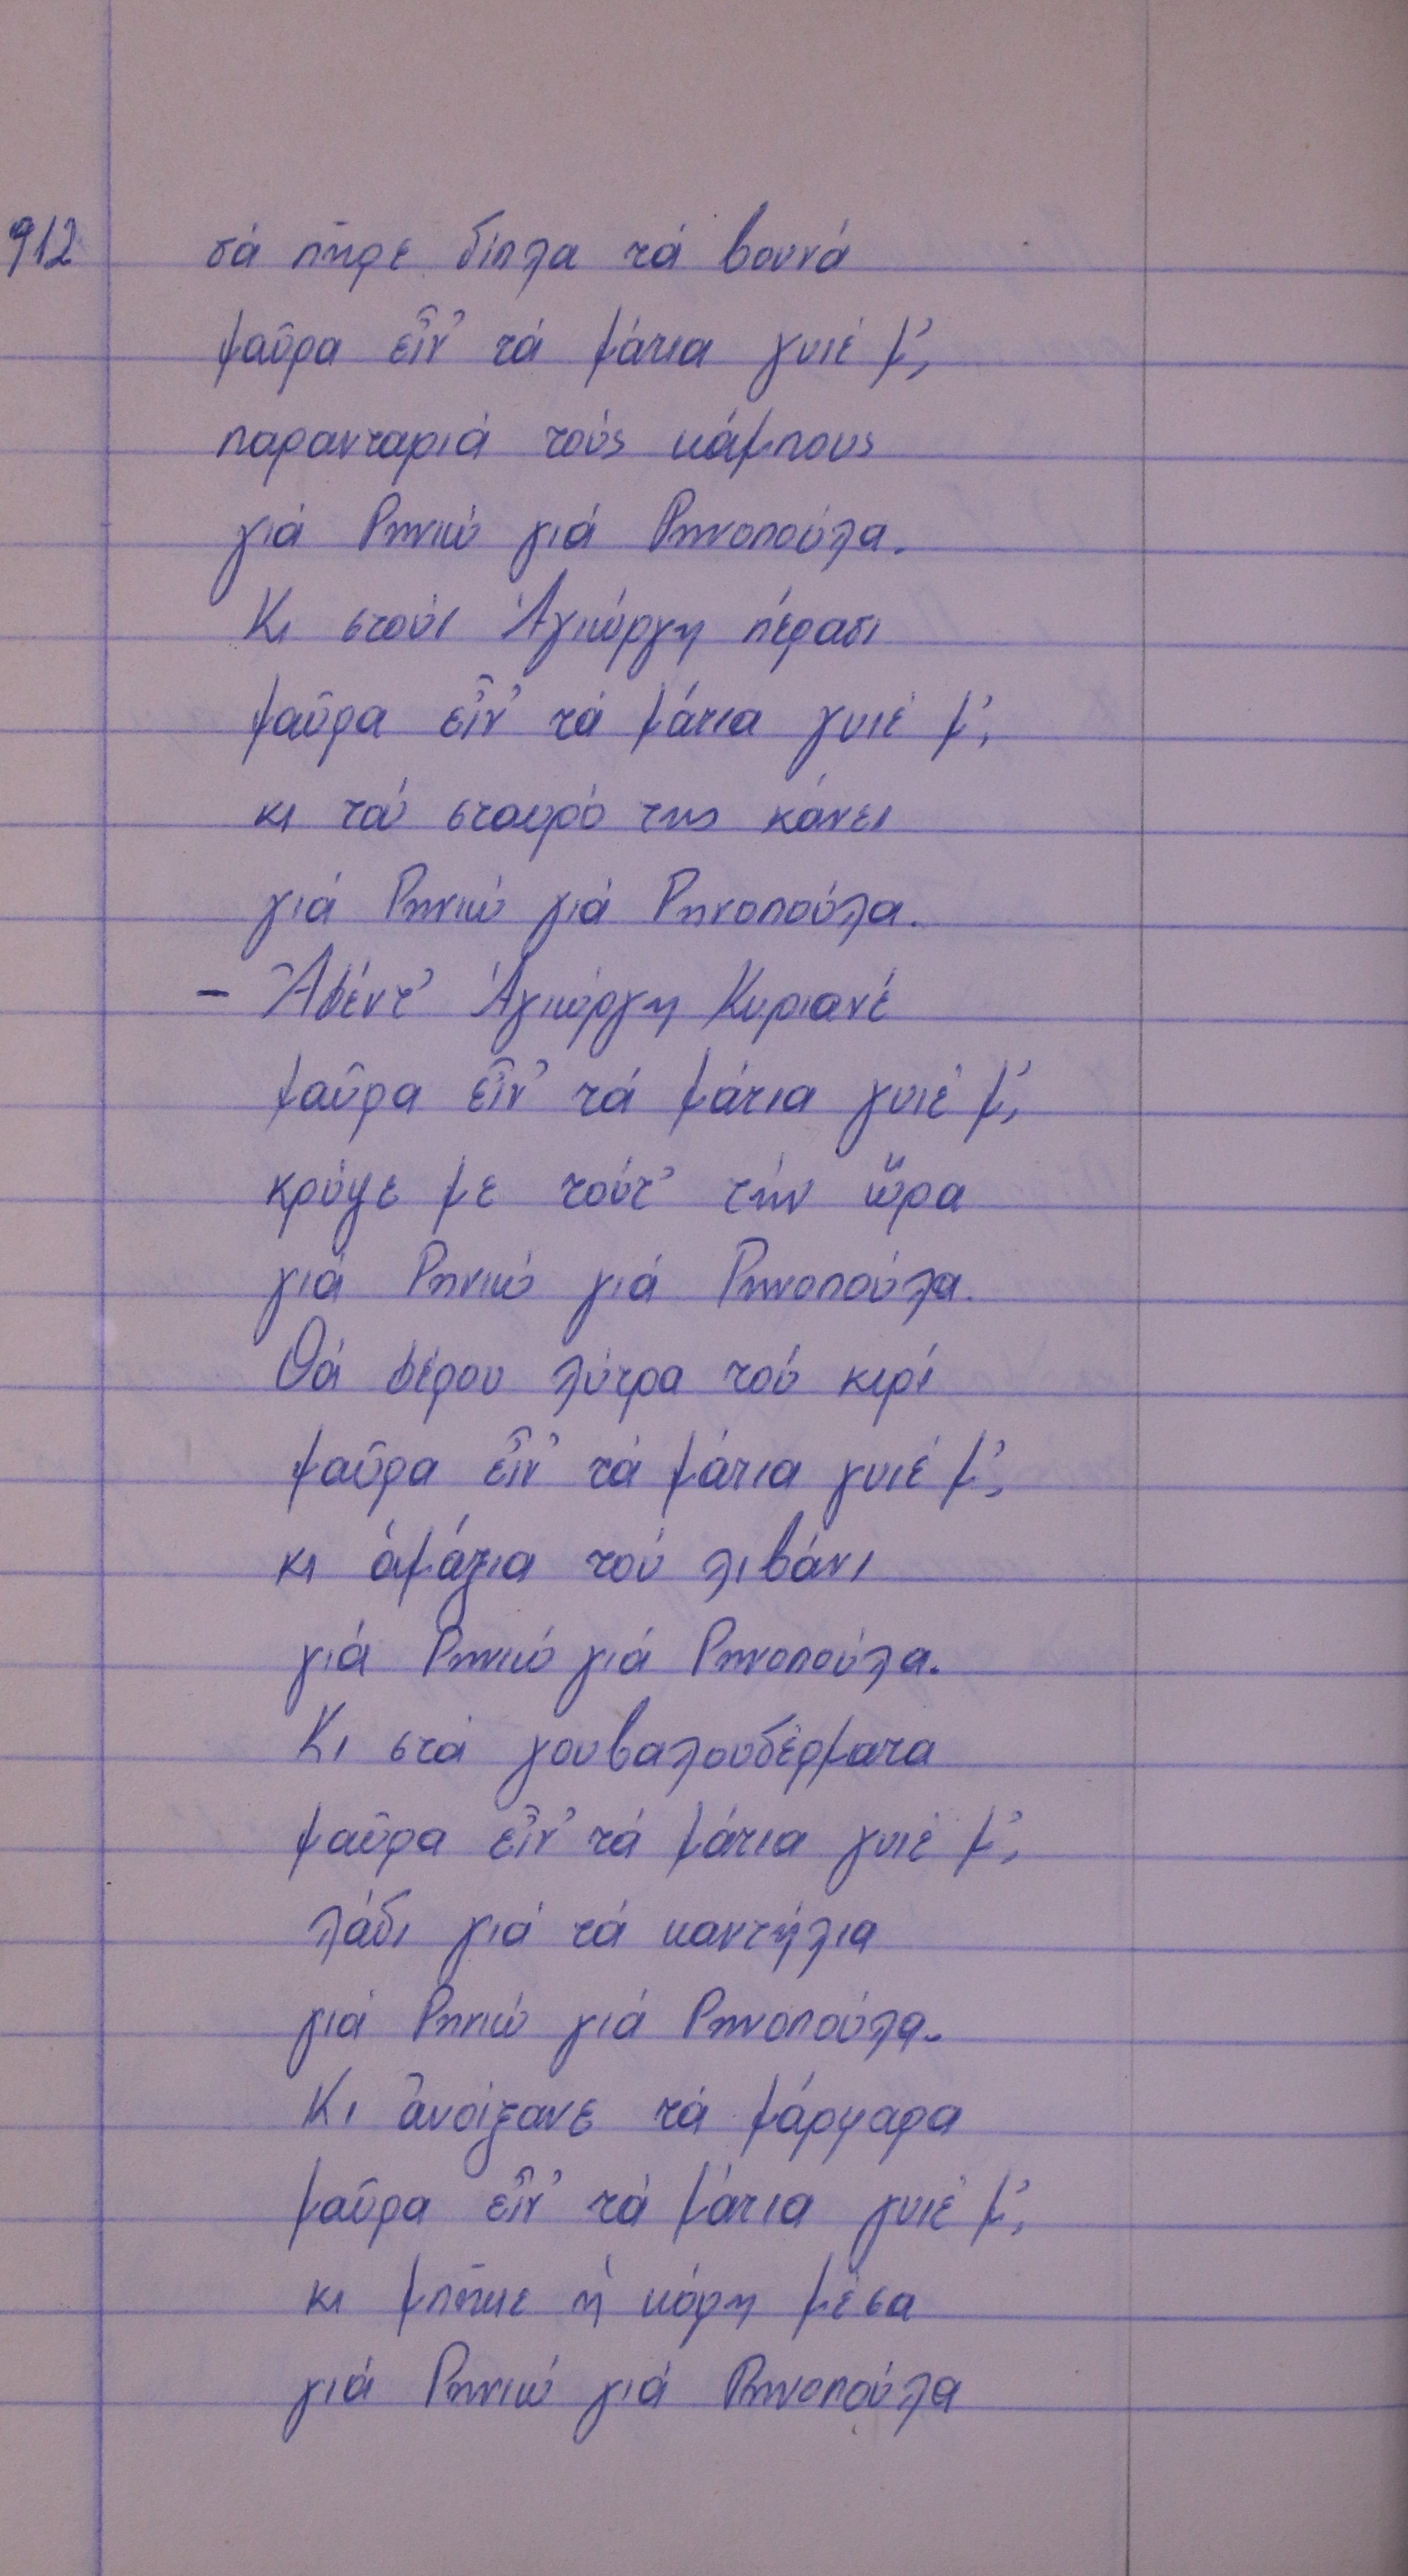 912 τά πῆρε δίπλα τά βουνά
μαῦρα εἶν' τά μάτια γυιέ μ',
παρανταριά τούς κάμπους
γιά Ρηνιώ γιά Ρηνοπούλα.
Κι στούν Ἁγιώργη πέρασι
μαῦρα εἶν' τά μάτια γυιέ μ',
κι τού σταυρό της κάνει
γιά Ρηνιώ γιά Ρηνοπούλα.
– Ἀφέντ' Ἁγιώργη Κυριανέ
μαῦρα εἶν' τά μάτια γυιέ μ',
κρύψε με τούτ' τήν ὥρα
γιά Ρηνιώ γιά Ρηνοπούλα.
Θά φέρου λύτρα τού κερί
μαῦρα εἶν' τά μάτια γυιέ μ',
κι ἁμάξια τού λιβάνι
γιά Ρηνιώ γιά Ρηνοπούλα.
Κι στά γουβαλουδέρματα
μαῦρα εἶν' τά μάτια γυιέ μ',
λάδι γιά τά καντήλια
γιά Ρηνιώ γιά Ρηνοπούλα.
Κι ἀνοίξανε τά μάρμαρα
μαῦρα εἶν' τά μάτια γυιέ μ',
κι μπῆκε ἡ κόρη μέσα
γιά Ρηνιώ γιά Ρηνοπούλα